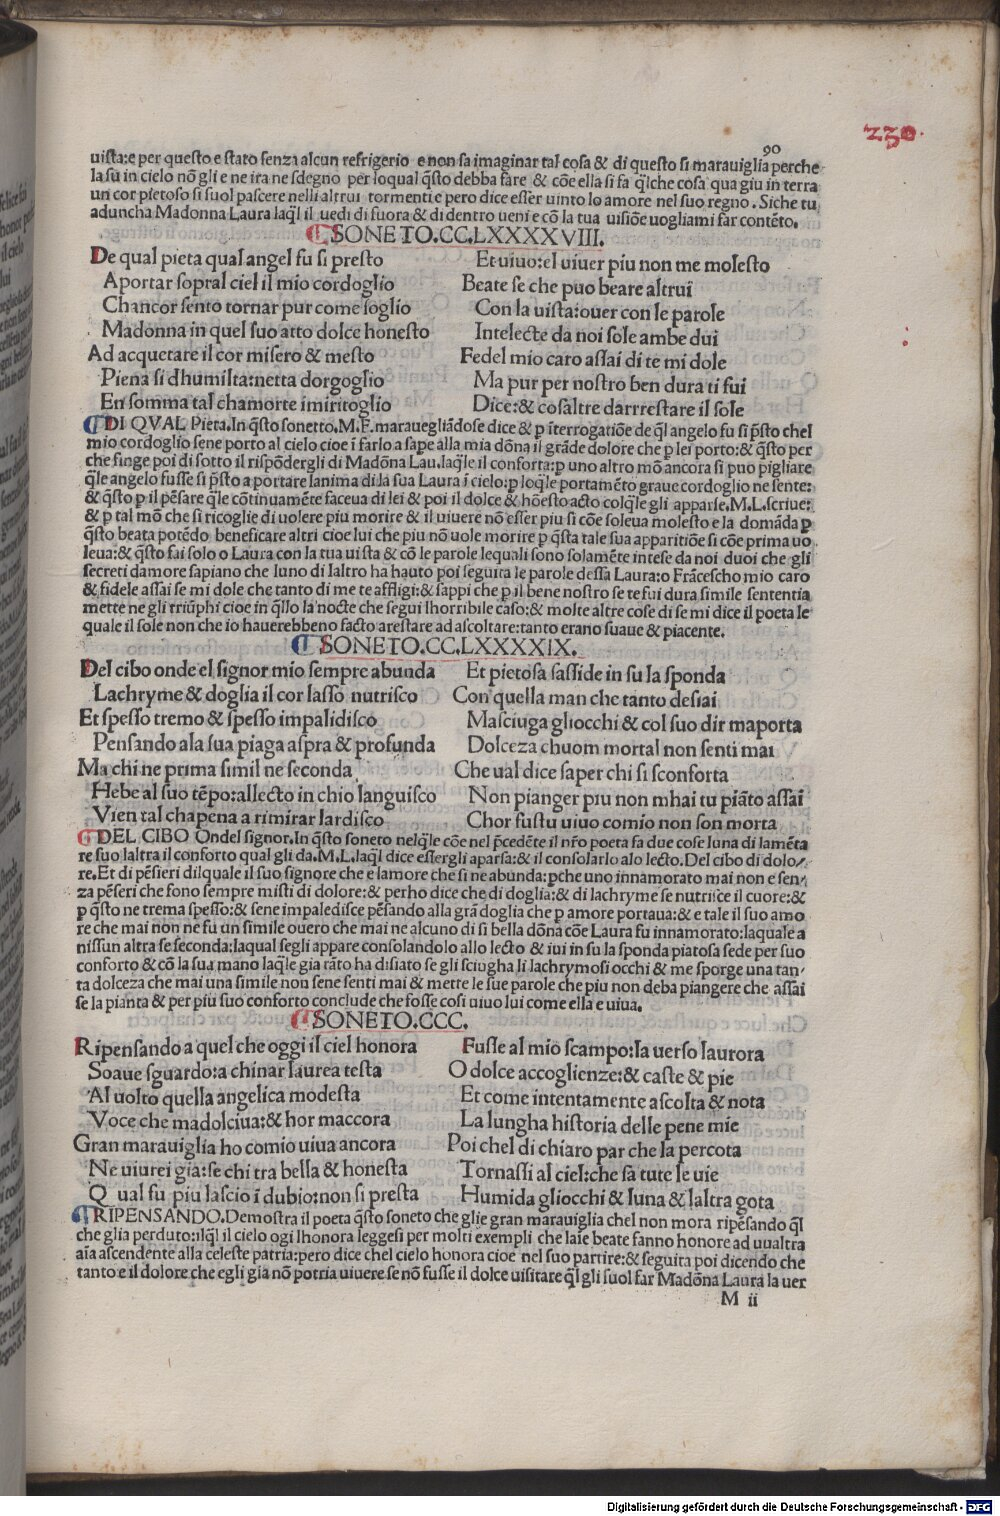 230.
90
uista:e per questo e stato senza alcun refrigerio e non sa imaginar tal cosa & di questo si marauiglia perche
la su in cielo nõ gli e ne ira ne sdegno per loqual q̃sto debba fare & cõe ella si fa q̃lche cosa qua giu in terra
un cor pietoso si suol pascere nelli altrui tormenti e pero dice esser uinto lo amore nel suo regno. Siche tu
aduncha Madonna Laura laq̃l il uedi di fuora & di dentro ueni e cõ la tua uisiõe uogliami far contẽto.
SONETO.CC.LXXXXVIII.
De qual pieta qual angel fu si presto
Aportar sopral ciel il mio cordoglio
Chancor sento tornar pur come soglio
Madonna in quel suo atto dolce honesto
Ad acquetare il cor misero & mesto
Piena si dhumilta:netta dorgoglio
En somma tal chamorte imiritoglio
Et uiuo:el uiuer piu non me molesto
Beate se che puo beare altrui
Con la uista:ouer con le parole
Intelecte da noi sole ambe dui
Fedel mio caro assai di te mi dole
Ma pur per nostro ben dura ti fui
Dice:& cosaltre darrrestare il sole
DI QVAL Pieta.In q̃sto sonetto.M.F.marauegliãdose dice & p ĩterrogatiõe de q̃l angelo fu si p̃sto chel
mio cordoglio sene porto al cielo cioe ĩ farlo a sape alla mia dõna il grãde dolore che p lei porto:& q̃sto per
che finge poi di sotto il rispõdergli di Madõna Lau.laq̃le il conforta:p uno altro mõ ancora si puo pigliare
q̃le angelo fusse si p̃sto a portare lanima di la sua Laura ĩ cielo:p loq̃le portamẽto graue cordoglio ne sente:
& q̃sto p il pẽsare q̃le cõtinuamẽte faceua di lei & poi il dolce & hõesto acto colq̃le gli apparse.M.L.scriue:
& p tal mõ che si ricoglie di uolere piu morire & il uiuere nõ esser piu si cõe soleua molesto e la domãda p
q̃sto beata potẽdo beneficare altri cioe lui che piu nõ uole morire p q̃sta tale sua apparitiõe si cõe prima uo
leua:& q̃sto fai solo o Laura con la tua uista & cõ le parole lequali sono solamẽte intese da noi duoi che gli
secreti damore sapiano che luno di laltro ha hauto poi seguita le parole dessa Laura:o Frãcescho mio caro
& fidele assai se mi dole che tanto di me te affligi:& sappi che p il bene nostro se te fui dura simile sententia
mette ne gli triũphi cioe in q̃llo la nocte che segui lhorribile caso:& molte altre cose di se mi dice il poeta le
quale il sole non che io hauerebbeno facto arestare ad ascoltare:tanto erano suaue & piacente.
SONETO.CC.LXXXXIX.
Del cibo onde el signor mio sempre abunda
Lachryme & doglia il cor lasso nutrisco
Et spesso tremo & spesso impalidisco
Pensando ala sua piaga aspra & profunda
Ma chi ne prima simil ne seconda
Hebe al suo tẽpo:allecto in chio languisco
Vien tal chapena a rimirar lardisco
Et pietosa sasside in su la sponda
Con quella man che tanto desiai
Masciuga gliocchi & col suo dir maporta
Dolceza chuom mortal non senti mai
Che ual dice saper chi si sconforta
Non pianger piu non mhai tu piãto assai
Chor fustu uiuo comio non son morta
DEL CIBO Ondel signor.In q̃sto soneto nelq̃le cõe nel p̃cedẽte il nr̃o poeta fa due cose luna di lamẽta
re suo laltra il conforto qual gli da.M.L.laq̃l dice essergli aparsa:& il consolarlo alo lecto.Del cibo di dolo/
re.Et di pẽsieri dilquale il suo signore che e lamore che si ne abunda:pche uno innamorato mai non e sen/
za pẽseri che sono sempre misti di dolore:& perho dice che di doglia:& di lachryme se nutrisce il cuore:&
p q̃sto ne trema spesso:& sene impaledisce pẽsando alla grã doglia che p amore portaua:& e tale il suo amo
re che mai non ne fu un simile ouero che mai ne alcuno di si bella dõna cõe Laura fu innamorato:laquale a
nissun altra se seconda:laqual segli appare consolandolo allo lecto & iui in su la sponda piatosa sede per suo
conforto & cõ la sua mano laq̃le gia tãto ha disiato se gli sciugha li lachrymosi occhi & me sporge una tan/
ta dolceza che mai una simile non sene senti mai & mette le sue parole che piu non deba piangere che assai
se la pianta & per piu suo conforto conclude che fosse cosi uiuo lui come ella e uiua.
SONETO.CCC.
Ripensando a quel che oggi il ciel honora
Soaue sguardo:a chinar laurea testa
Al uolto quella angelica modesta
Voce che madolciua:& hor maccora
Gran marauiglia ho comio uiua ancora
Ne uiurei gia:se chi tra bella & honesta
Qual fu piu lascio ĩ dubio:non si presta
Fusse al mio scampo:la uerso laurora
O dolce accoglienze:& caste & pie
Et come intentamente ascolta & nota
La lungha historia delle pene mie
Poi chel di chiaro par che la percota
Tornassi al ciel:che sa tute le uie
Humida gliocchi & luna & laltra gota
RIPENSANDO.Demostra il poeta q̃sto soneto che glie gran marauiglia chel non mora ripẽsando q̃l
che glia perduto:ilq̃l il cielo ogi lhonora leggesi per molti exempli che laie beate fanno honore ad uualtra
aĩa ascendente alla celeste patria:pero dice chel cielo honora cioe nel suo partire:& seguita poi dicendo che
tanto e il dolore che egli gia nõ potria uiuere se nõ fusse il dolce uisitare q̃l gli suol far Madõna Laura la uer
M ii
Digitalisierung gefördert durch die Deutsche Forschungsgemeinschaft - DFG